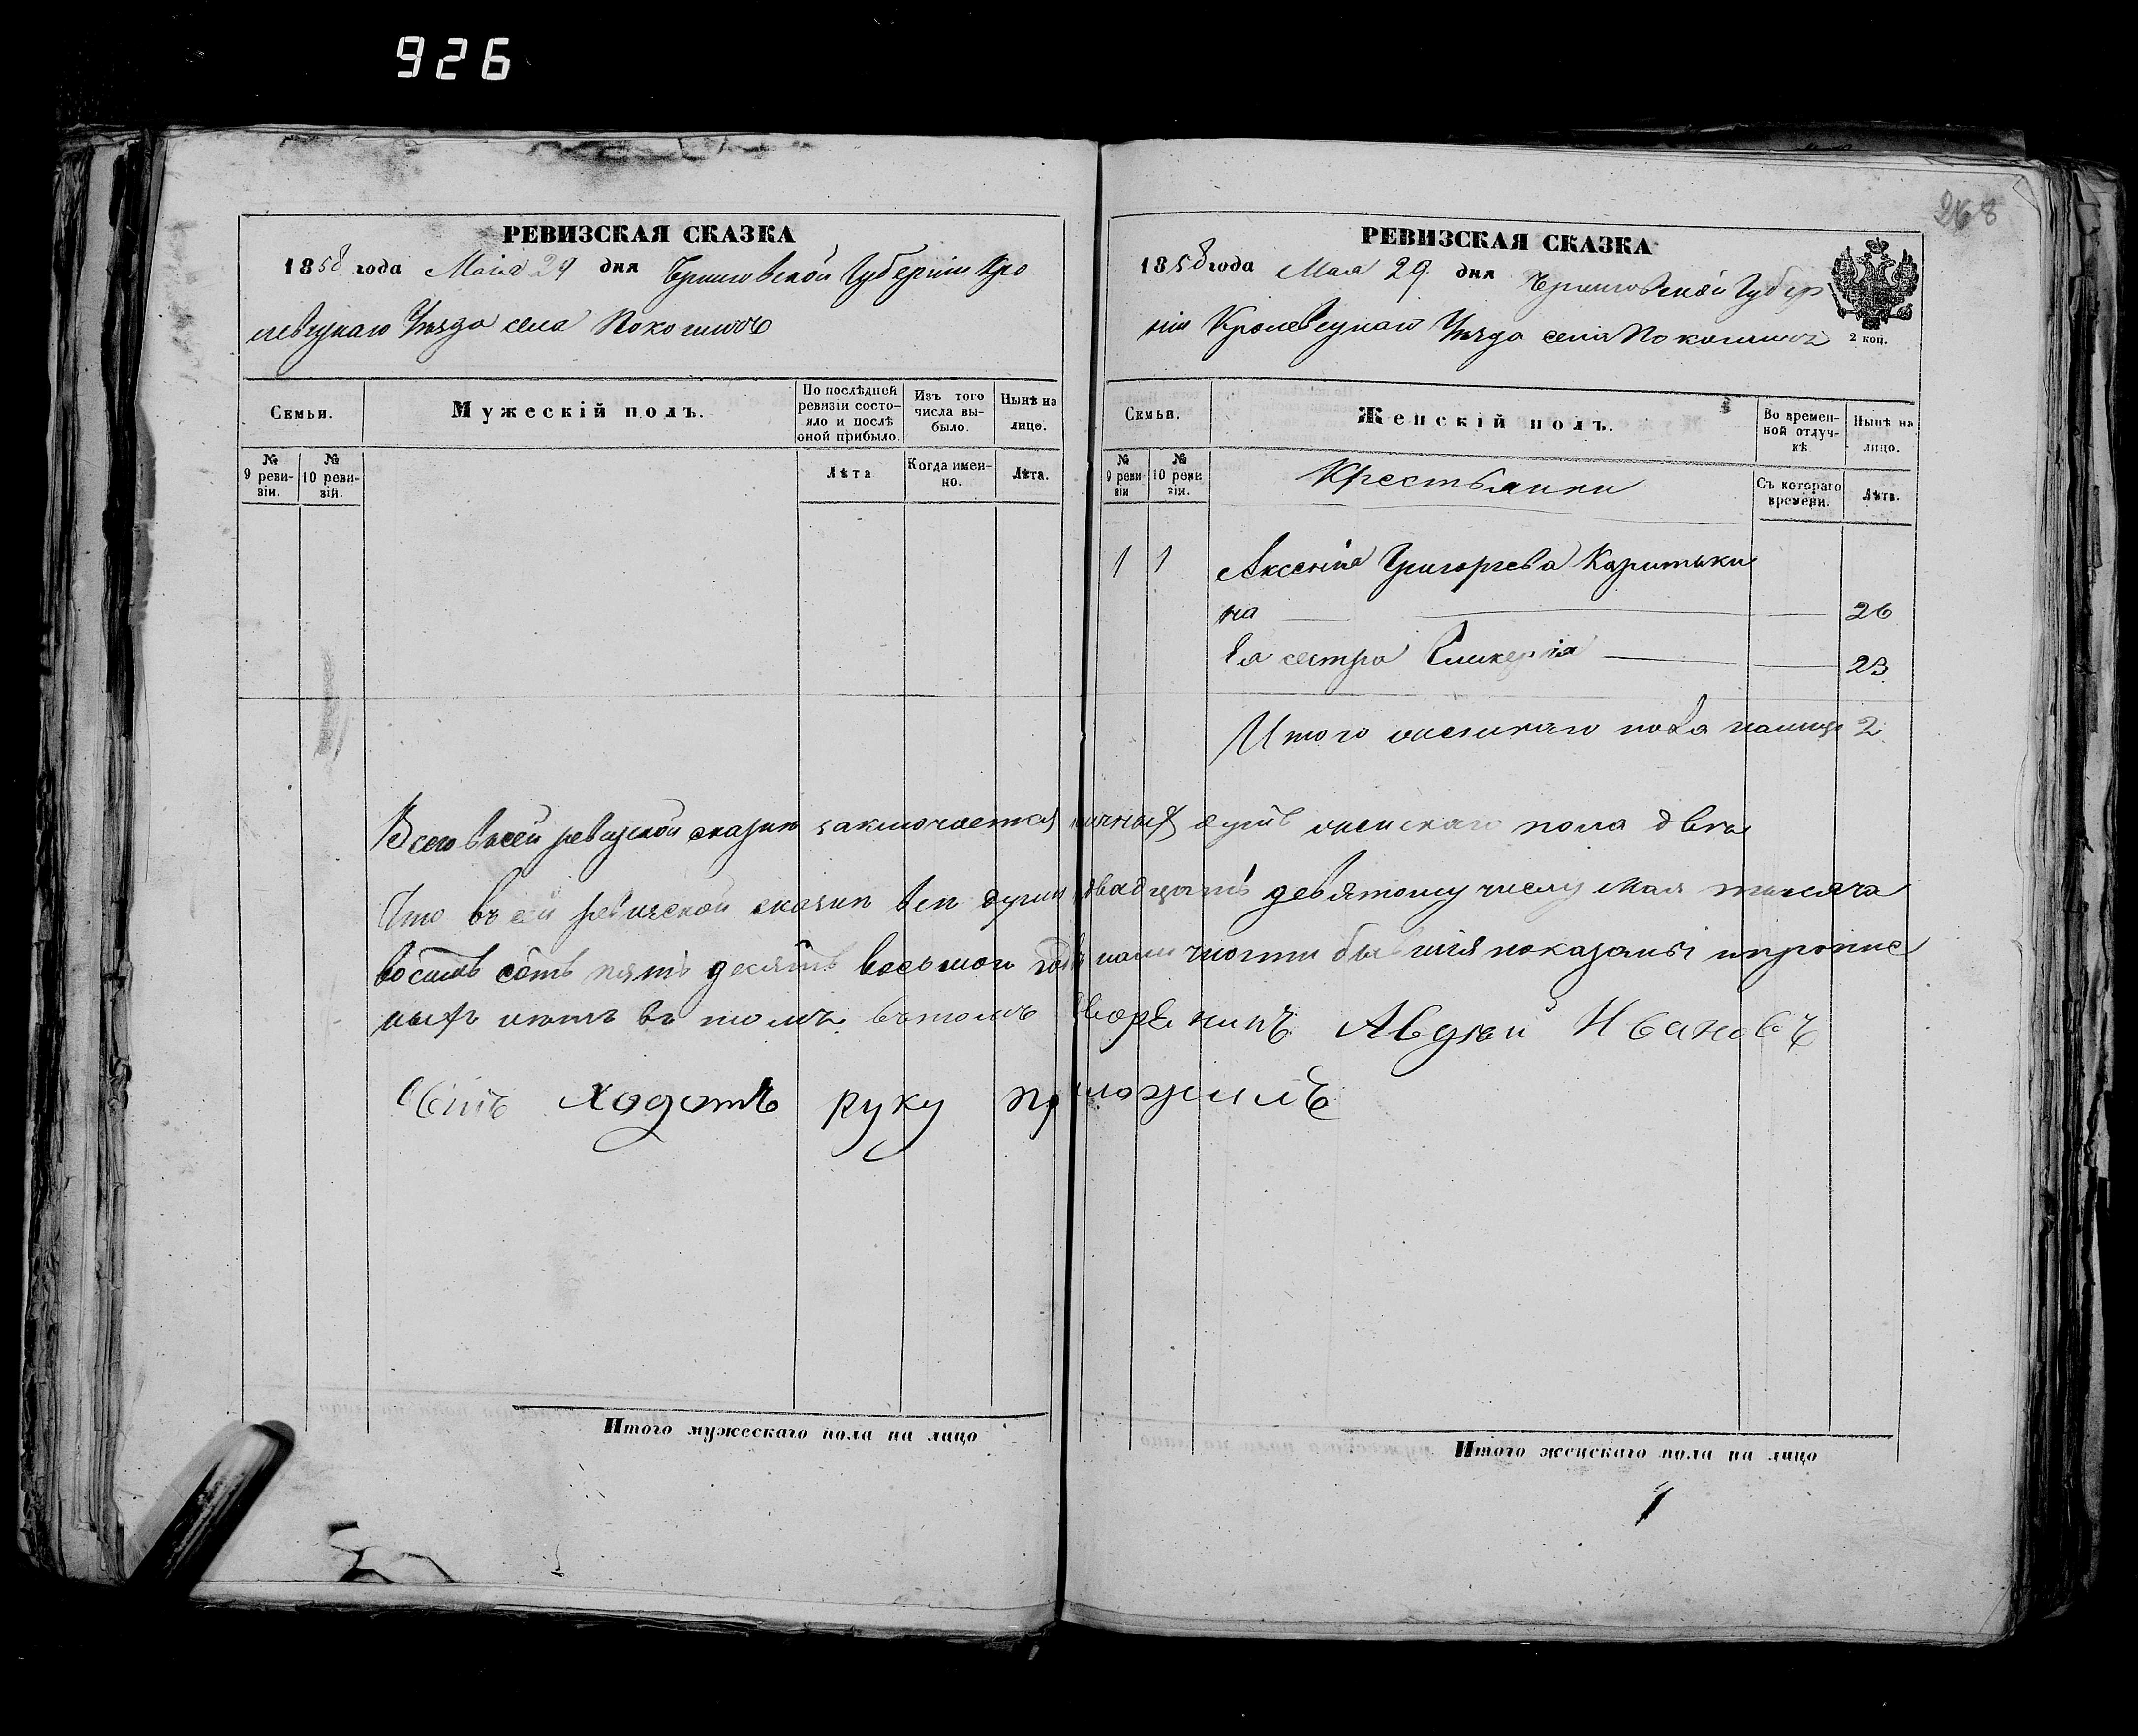 926
268
РЕВИЗСКАЯ СКАЗКА
1858 года Маія 29 дня Черниговской Губерніи Кро
левецкаго Уѣзда села Покошичъ
Семьи.
Мужескій полъ.
По послѣдней ревизіи состояло и послѣ оной прибыло.
Изъ того числа выбыло.
Нынѣ на лице.
№ 9 ревизіи.
№ 10 ревизіи.
Лѣта
Когда именно.
Лѣта.
РЕВИЗСКАЯ СКАЗКА
1858 года Мая 29 дня Черниговской Губер
ніи Кролевецкаго Уѣзда села Покошичъ
2 коп.
Семьи.
Женскій полъ.
Во временной отлучкѣ
Нынѣ на лицо.
№ 9 ревизіи
№ 10 ревизіи.
Крестьянки
Съ котораго времени.
Лѣта.
1 1 Аксенія Григорьева
на 26
Ея сестра Гликерія 23
Итого женскаго пола налицо 2
Всего в сей ревизской сказки заключается наличных душъ женскаго пола двѣ
Что въ сей ревизской сказки всѣ души двадцать девятому числу Мая тысяча
восемь сотъ пять десятъ восьмого года наличности бывшія показаны и пропис
ныхъ нѣтъ въ томъ въ томъ дворенинъ Авдѣй Ивановъ
сынъ Ходотъ руку приложилъ
Итого мужескаго пола на лицо
Итого женскаго пола на лицо